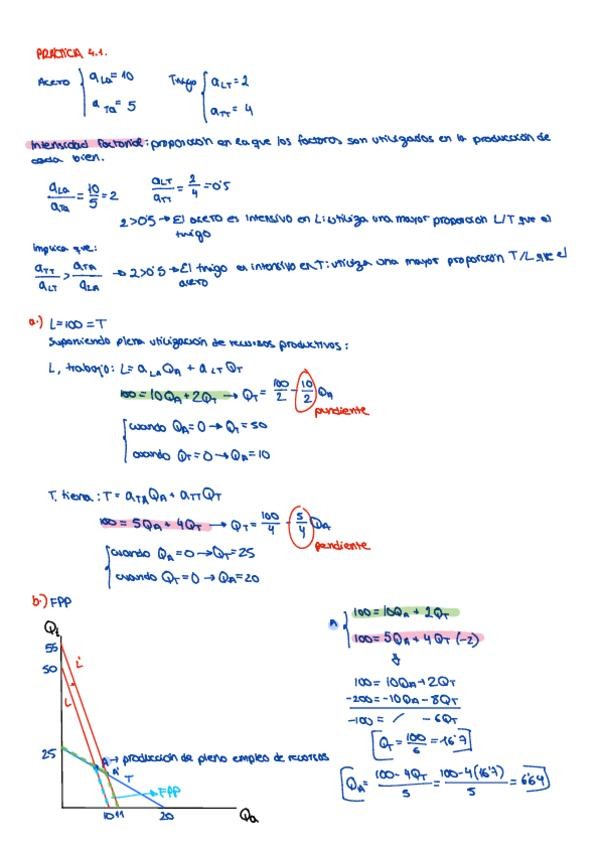 PRÁCTICA 4.1.
Acero { aLA = 10 Trigo { aLT = 2
aTA = 5 aTT = 4
Intensidad factorial: proporción en la que los factores son utilizados en la producción de
cada bien.
aLA/aTA = 10/5 = 2 aLT/aTT = 2/4 = 0'5
2 > 0'5 → El acero es intensivo en L: utiliza una mayor proporción L/T que el
trigo
Implica que:
aTT/aLT > aTA/aLA → 2 > 0'5 → El trigo es intensivo en T: utiliza una mayor proporción T/L que el
acero
a.) L = 100 = T
Suponiendo plena utilización de recursos productivos:
L, trabajo: L = aLA QA + aLT QT
100 = 10QA + 2QT → QT = 100/2 - 10/2 QA
pendiente
cuando QA = 0 → QT = 50
cuando QT = 0 → QA = 10
T, tierra: T = aTA QA + aTT QT
100 = 5QA + 4QT → QT = 100/4 - 5/4 QA
pendiente
cuando QA = 0 → QT = 25
cuando QT = 0 → QA = 20
b.) FPP
QT
55
50
L'
L
25
A → producción de pleno empleo de recursos
A'
T
→ FPP
10 11 20 Qa
100 = 10QA + 2QT
100 = 5QA + 4QT (-2)
⇓
100 = 10QA + 2QT
-200 = -10QA - 8QT
-100 = / - 6QT
QT = 100/6 = 16'7
QA = 100 - 4QT/5 = 100 - 4(16'7)/5 = 6'64